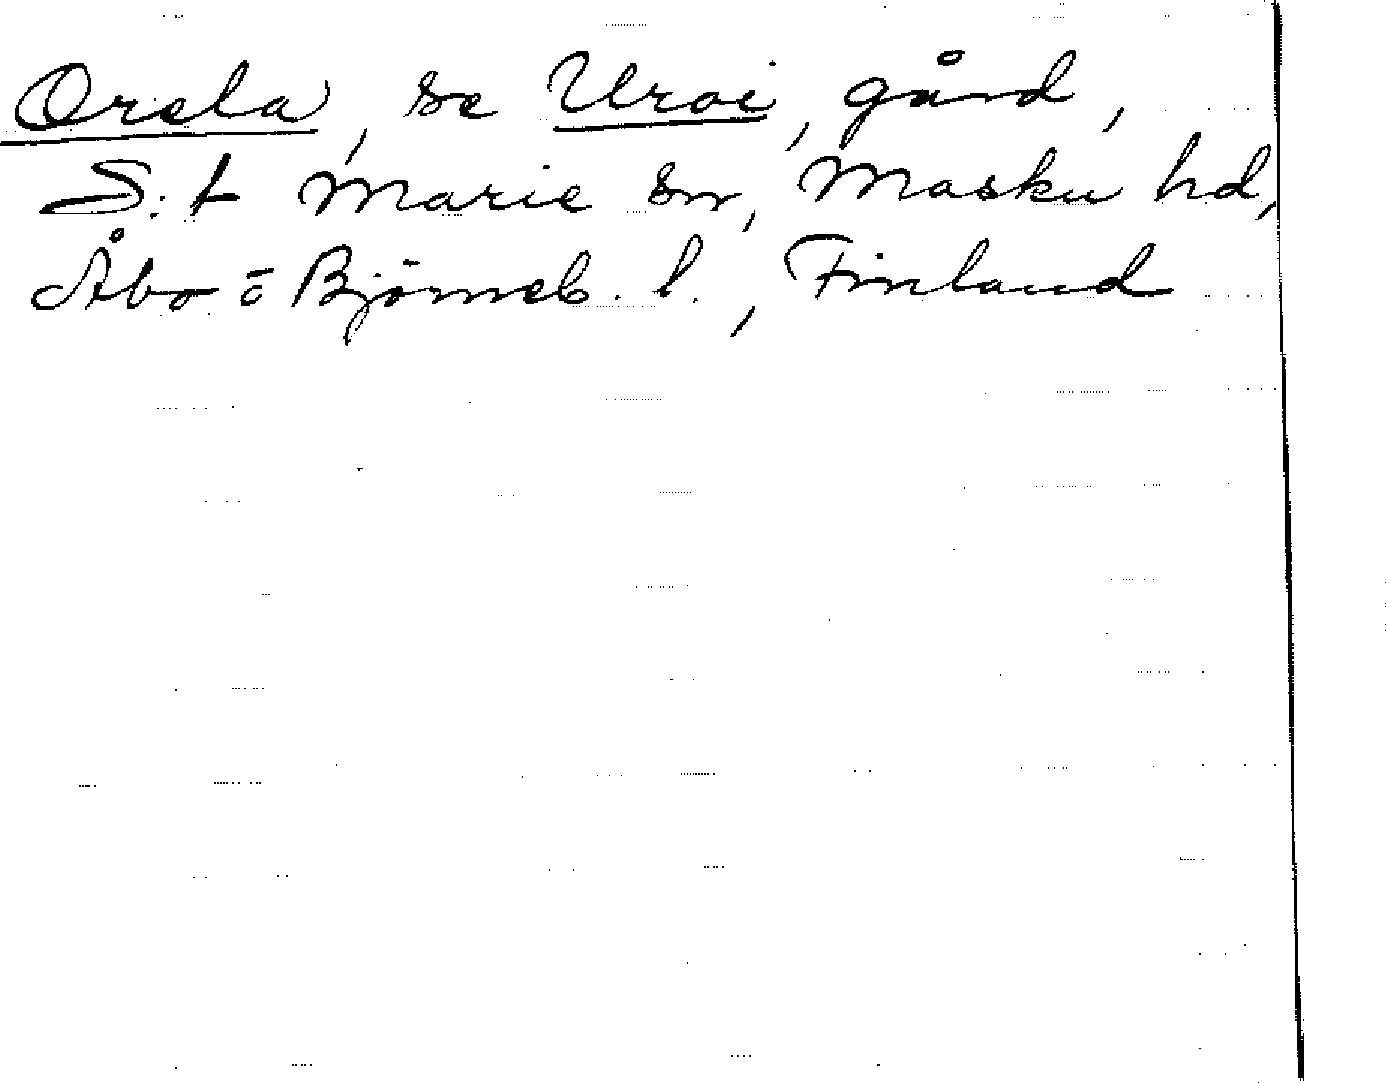 Orsla, se Uroi, gård,
S:t Marie sn, Masku hd,
Åbo o Björneb. l., Finland